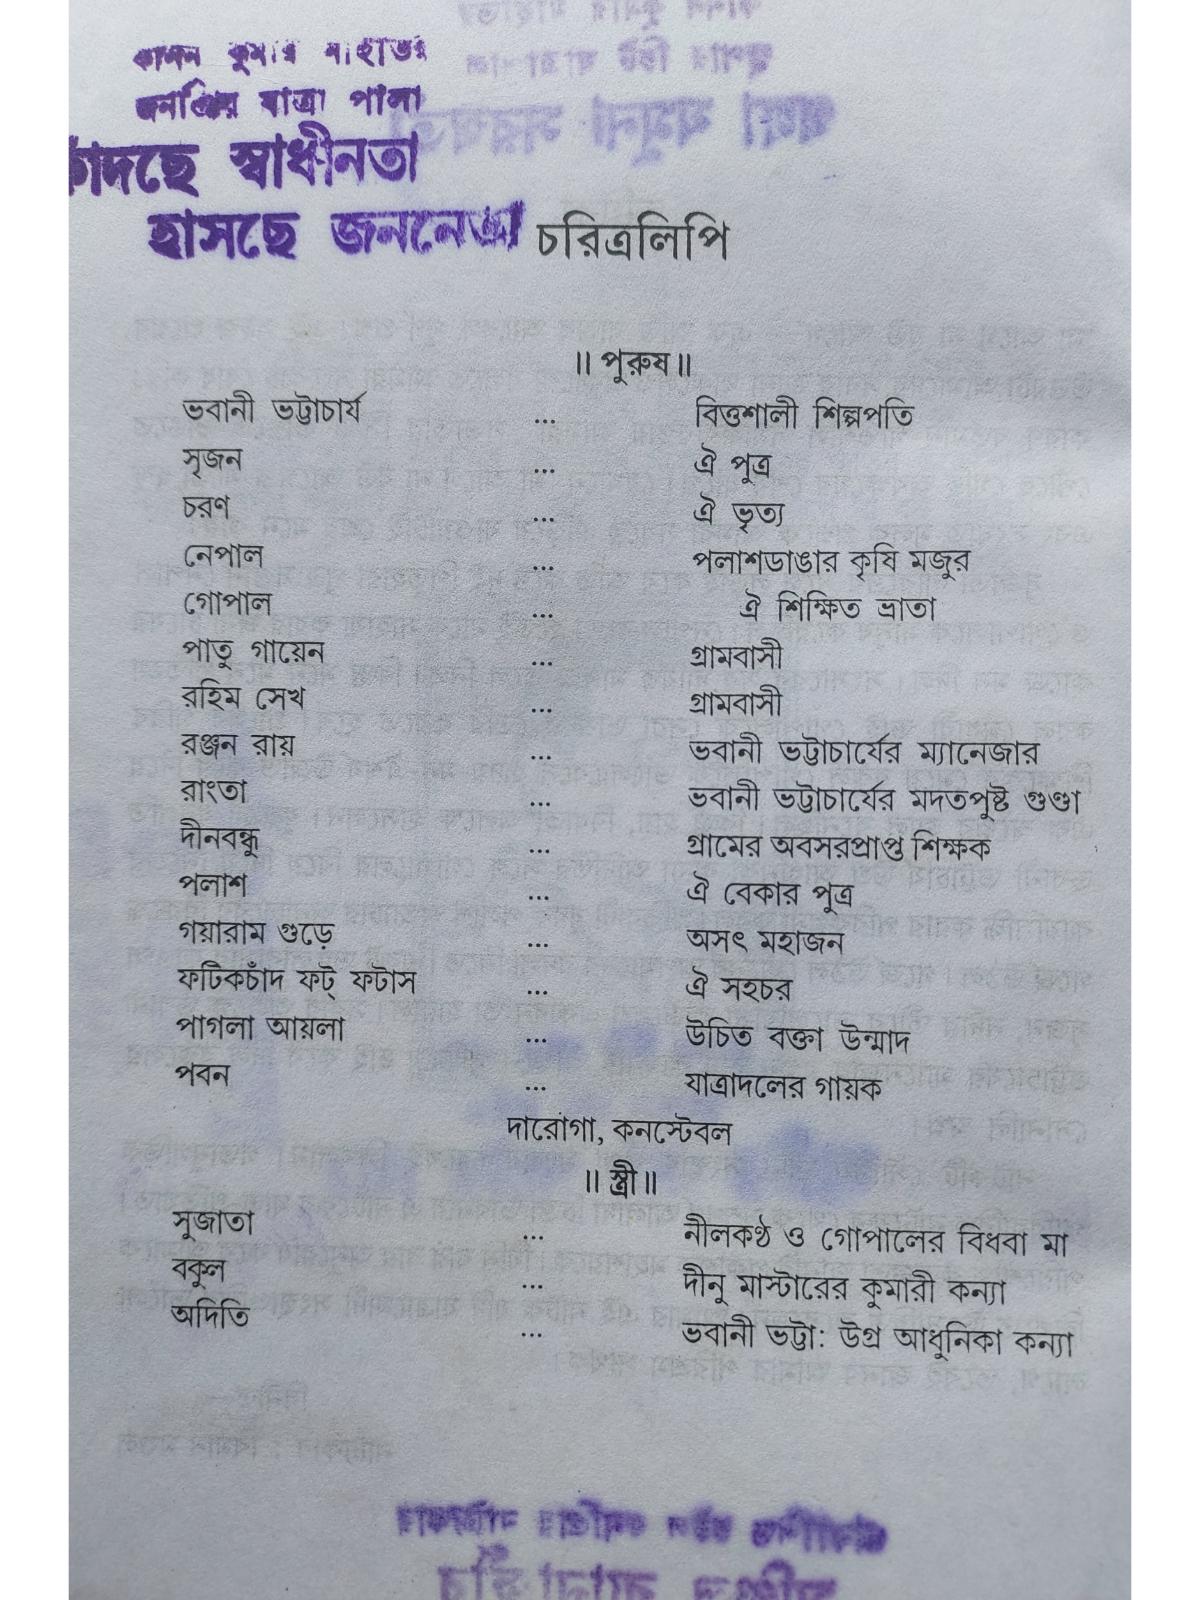 কানন কুমার মাহাতর
জনপ্রিয় যাত্রা পালা
কাঁদছে স্বাধীনতা
হাসছে জননেতা
চরিত্রলিপি
॥ পুরুষ ॥
ভবানী ভট্টাচার্য ... বিত্তশালী শিল্পপতি
সৃজন ... ঐ পুত্র
চরণ ... ঐ ভৃত্য
নেপাল ... পলাশডাঙার কৃষি মজুর
গোপাল ... ঐ শিক্ষিত ভ্রাতা
পাতু গায়েন ... গ্রামবাসী
রহিম সেখ ... গ্রামবাসী
রঞ্জন রায় ... ভবানী ভট্টাচার্যের ম্যানেজার
রাংতা ... ভবানী ভট্টাচার্যের মদতপুষ্ট গুণ্ডা
দীনবন্ধু ... গ্রামের অবসরপ্রাপ্ত শিক্ষক
পলাশ ... ঐ বেকার পুত্র
গয়ারাম গুড়ে ... অসৎ মহাজন
ফটিকচাঁদ ফট্ ফটাস ... ঐ সহচর
পাগলা আয়লা ... উচিত বক্তা উন্মাদ
পবন ... যাত্রাদলের গায়ক
দারোগা, কনস্টেবল
॥ স্ত্রী ॥
সুজাতা ... নীলকণ্ঠ ও গোপালের বিধবা মা
বকুল ... দীনু মাস্টারের কুমারী কন্যা
অদিতি ... ভবানী ভট্টা: উগ্র আধুনিকা কন্যা